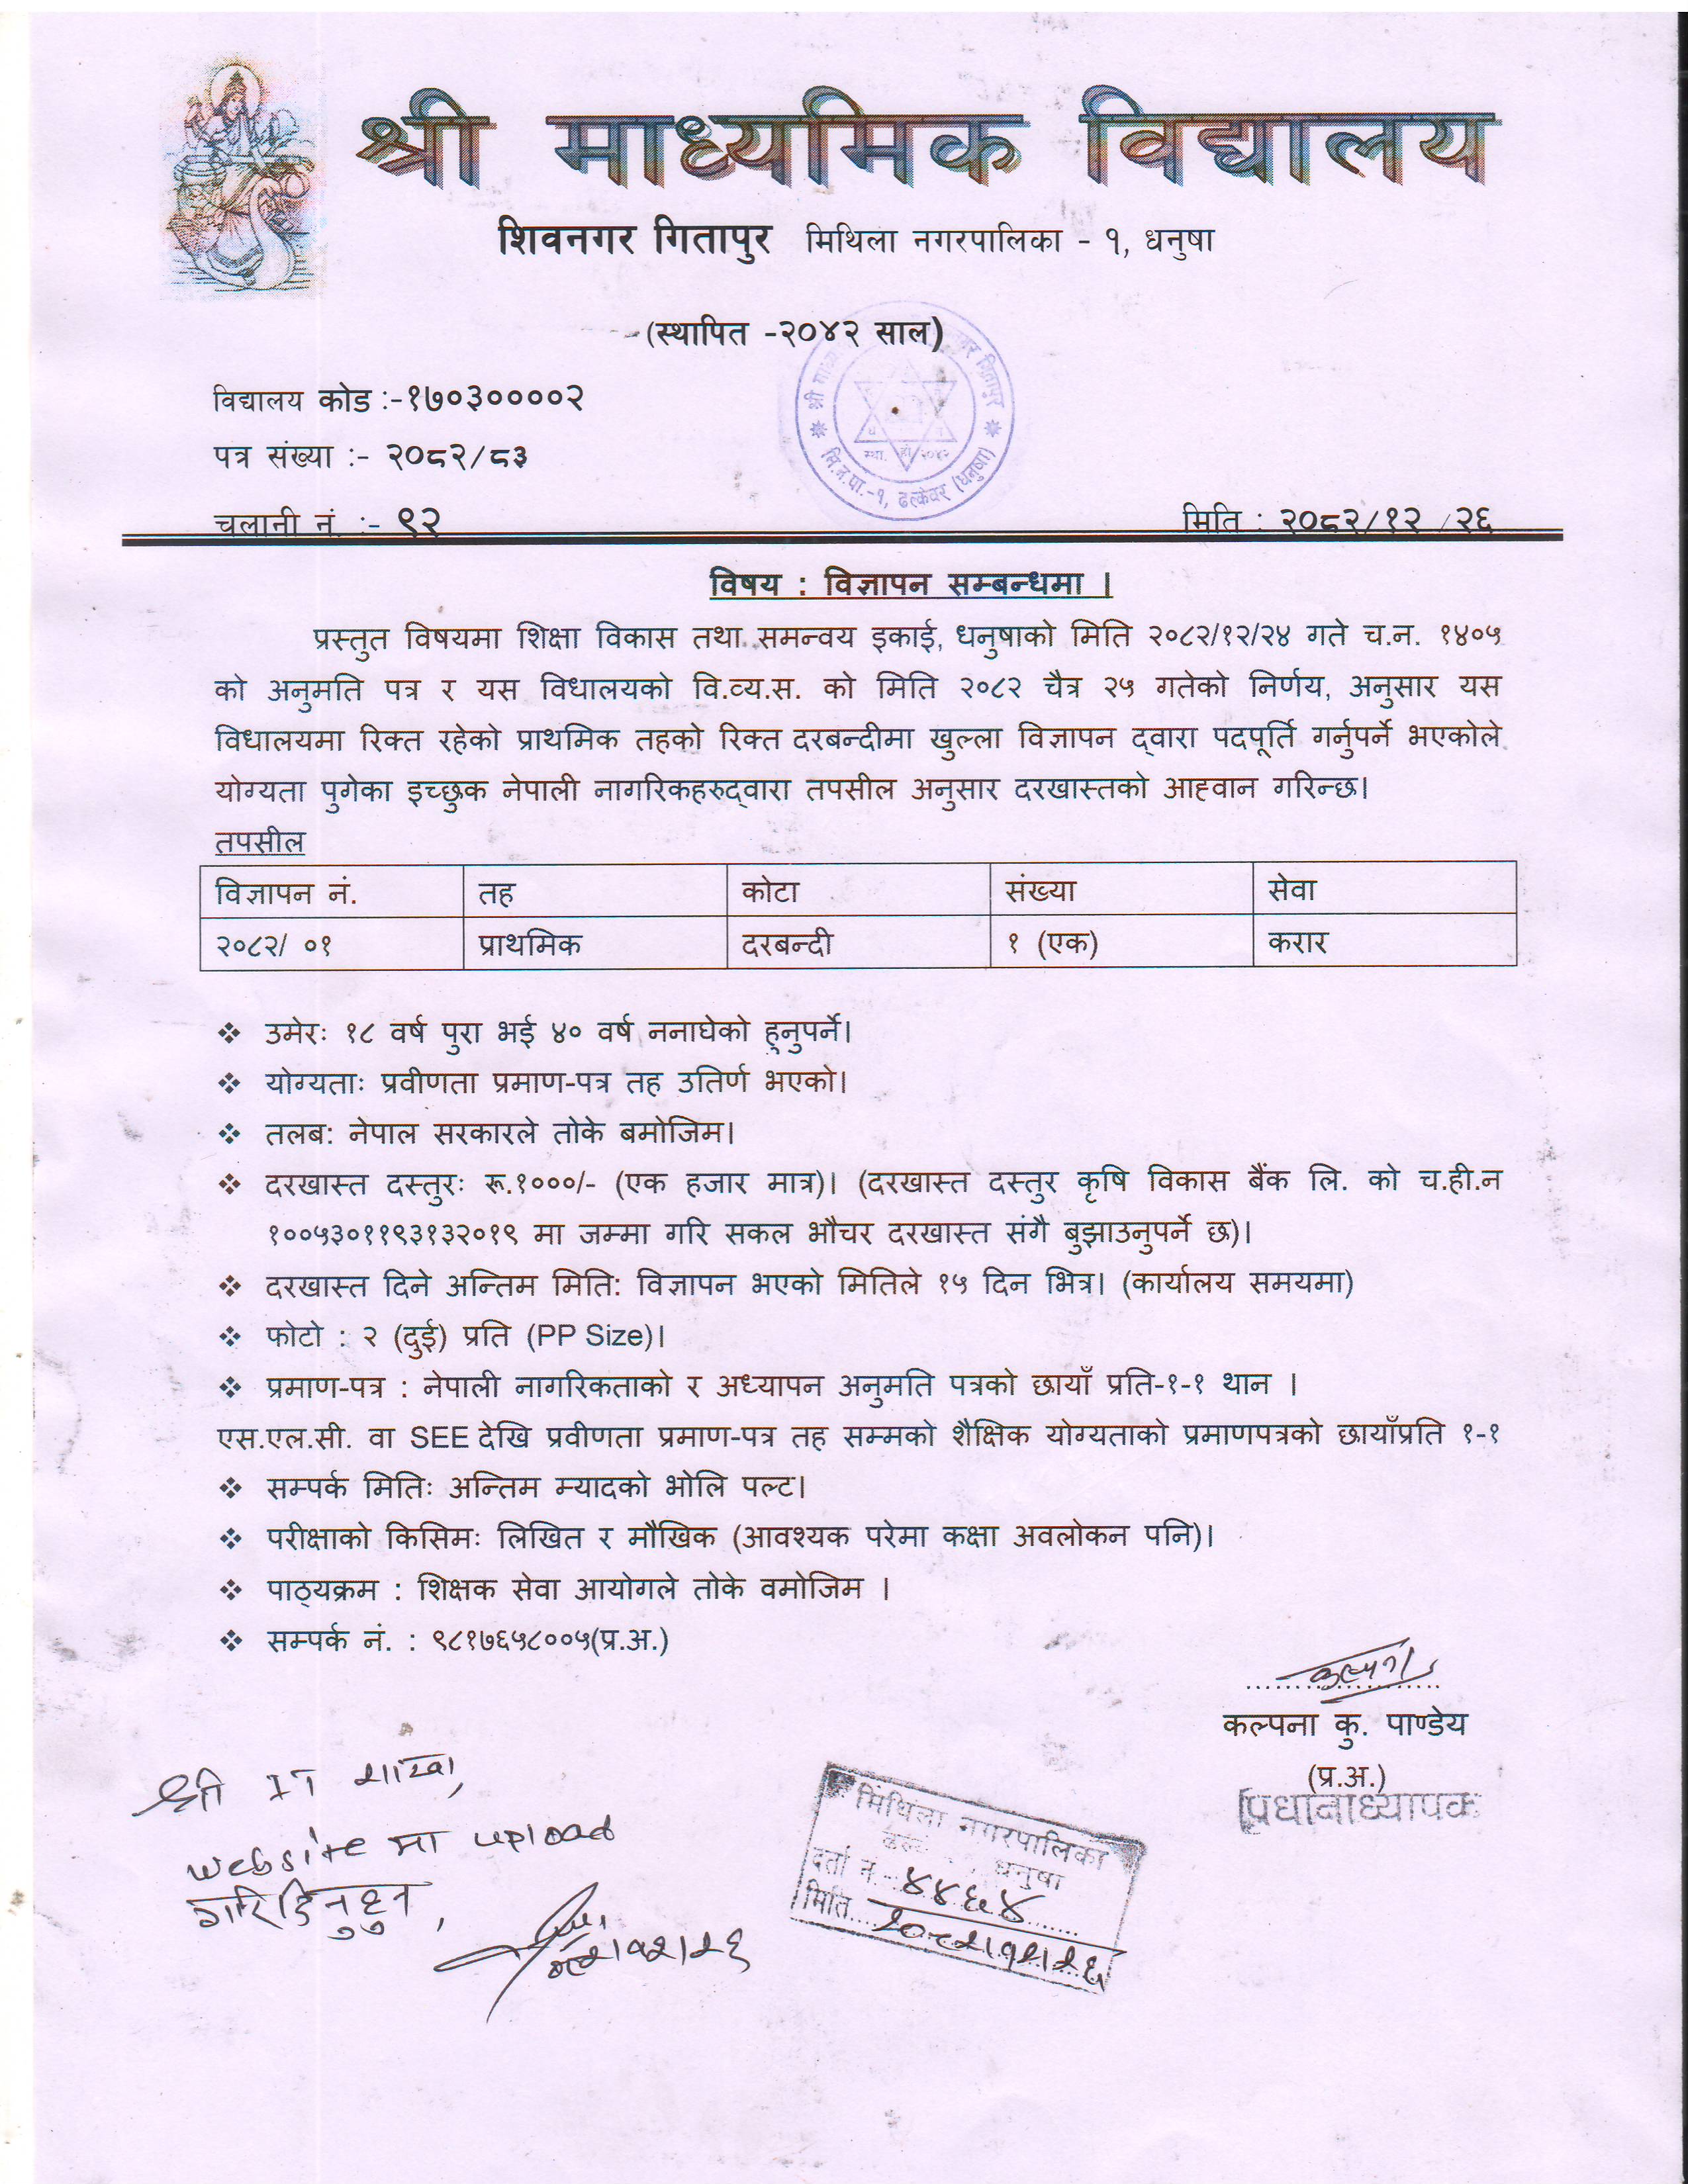 श्री माध्यमिक विद्यालय
शिवनगर गितापुर मिथिला नगरपालिका - १, धनुषा
(स्थापित -२०४२ साल)
विद्यालय कोड :-१७०३००००२
पत्र संख्या :- २०८२/८३
चलानी नं. :- ९२
मिति : २०८२/१२ /२६
मि.न.पा.-१, ढल्केवर (धनुषा)
विषय : विज्ञापन सम्बन्धमा ।
प्रस्तुत विषयमा शिक्षा विकास तथा समन्वय इकाई, धनुषाको मिति २०८२/१२/२४ गते च.न. १४०५
को अनुमति पत्र र यस विधालयको वि.व्य.स. को मिति २०८२ चैत्र २५ गतेको निर्णय, अनुसार यस
विधालयमा रिक्त रहेको प्राथमिक तहको रिक्त दरबन्दीमा खुल्ला विज्ञापन द्वारा पदपूर्ति गर्नुपर्ने भएकोले
योग्यता पुगेका इच्छुक नेपाली नागरिकहरुद्वारा तपसील अनुसार दरखास्तको आह्वान गरिन्छ।
तपसील
विज्ञापन नं. तह कोटा संख्या सेवा
२०८२/ ०१ प्राथमिक दरबन्दी १ (एक) करार
❖ उमेरः १८ वर्ष पुरा भई ४० वर्ष ननाघेको हुनुपर्ने।
❖ योग्यताः प्रवीणता प्रमाण-पत्र तह उतिर्ण भएको।
❖ तलब: नेपाल सरकारले तोके बमोजिम।
❖ दरखास्त दस्तुरः रू.१०००/- (एक हजार मात्र)। (दरखास्त दस्तुर कृषि विकास बैंक लि. को च.ही.न
१००५३०११९३१३२०१९ मा जम्मा गरि सकल भौचर दरखास्त संगै बुझाउनुपर्ने छ)।
❖ दरखास्त दिने अन्तिम मिति: विज्ञापन भएको मितिले १५ दिन भित्र। (कार्यालय समयमा)
❖ फोटो : २ (दुई) प्रति (PP Size)।
❖ प्रमाण-पत्र : नेपाली नागरिकताको र अध्यापन अनुमति पत्रको छायाँ प्रति-१-१ थान ।
एस.एल.सी. वा SEE देखि प्रवीणता प्रमाण-पत्र तह सम्मको शैक्षिक योग्यताको प्रमाणपत्रको छायाँप्रति १-१
❖ सम्पर्क मितिः अन्तिम म्यादको भोलि पल्ट।
❖ परीक्षाको किसिमः लिखित र मौखिक (आवश्यक परेमा कक्षा अवलोकन पनि)।
❖ पाठ्यक्रम : शिक्षक सेवा आयोगले तोके वमोजिम ।
❖ सम्पर्क नं. : ९८१७६५८००५(प्र.अ.)
कल्पना
कल्पना कु. पाण्डेय
(प्र.अ.)
प्रधानाध्यापक
श्री IT शाखा,
website मा upload
गरिदिनुहुन,
मिथिला नगरपालिका
धनुषा
दर्ता न. ४४६४
मिति २०८२।१२।२६